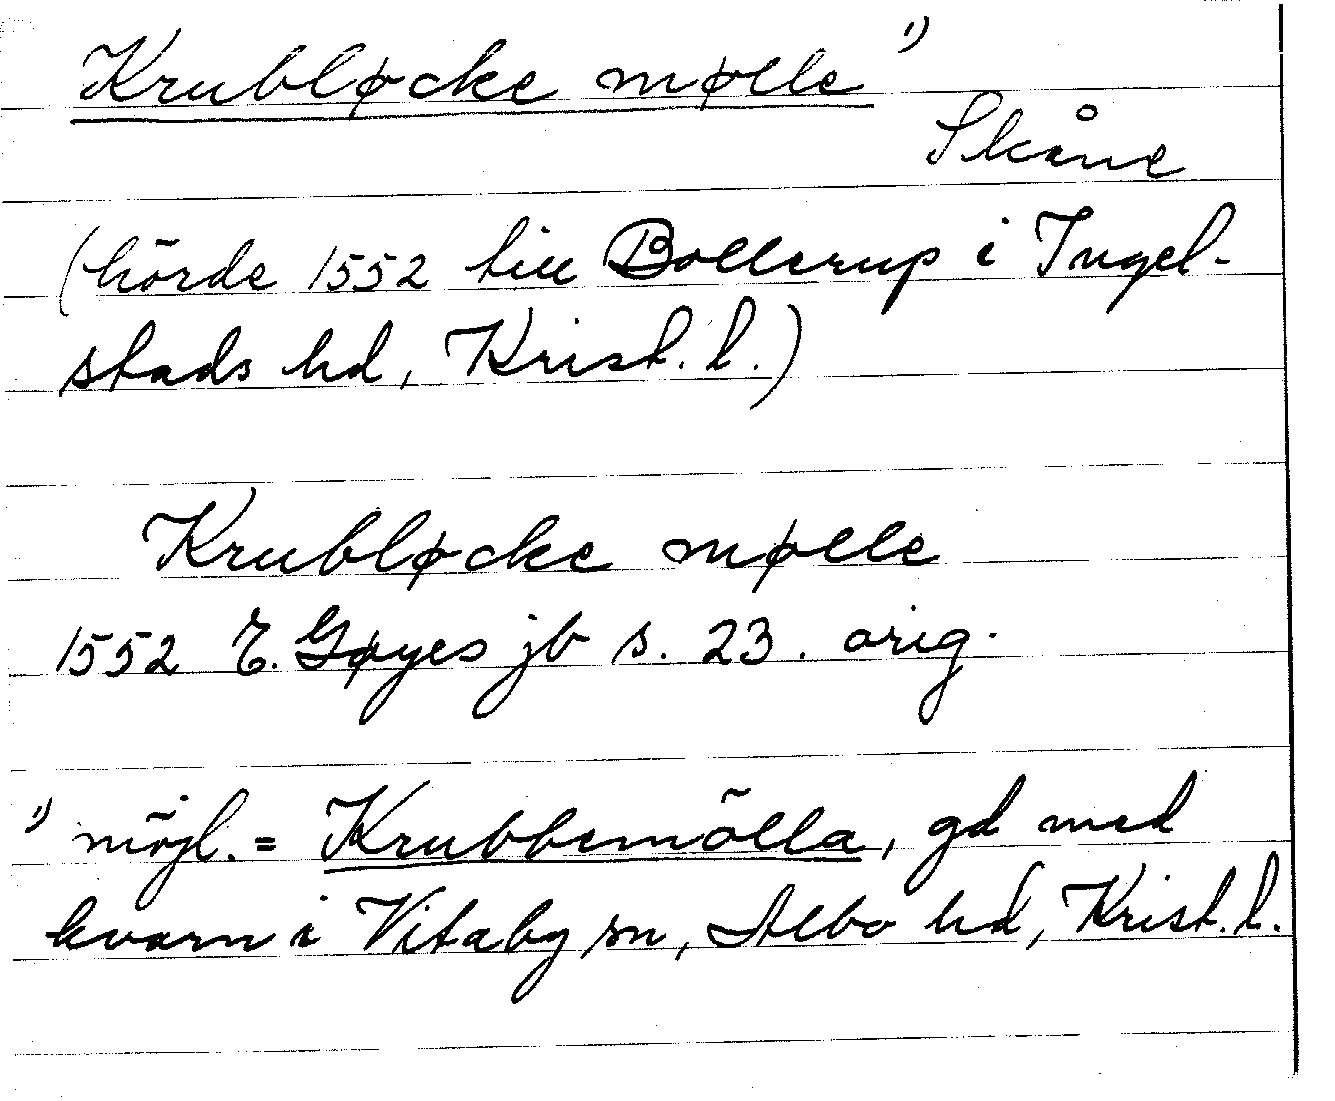 Krubløcke mølle ¹)
Skåne
(hörde 1552 till Bollerup i Ingel-
stads hd, Krist. l.)
Krubløcke mølle
1552 E. Gøyes jb s. 23. orig.
¹) möjl. = Krubbemölla, gd med
kvarn i Vitaby sn, Albo hd, Krist. l.